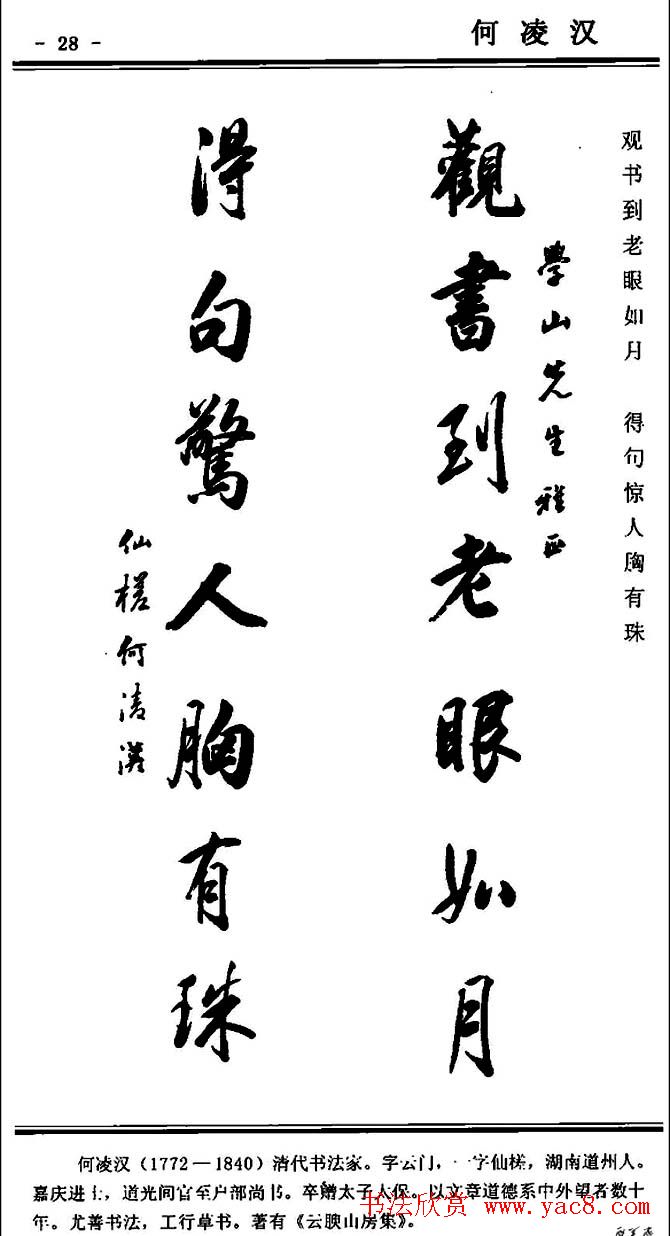 - 28 -
何凌汉
观书到老眼如月 得句惊人胸有珠
學山先生雅正
觀書到老眼如月
得句驚人胸有珠
仙槎何凌漢
何凌汉（1772—1840）清代书法家。字云门，一字仙槎，湖南道州人。
嘉庆进士，道光间官至户部尚书。卒赠太子太保。以文章道德系中外望者数十
年。尤善书法，工行草书。著有《云腴山房集》。
书法欣赏 www.yac8.com